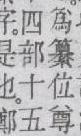 為纂位尊
四部十五
字。是也。鄭